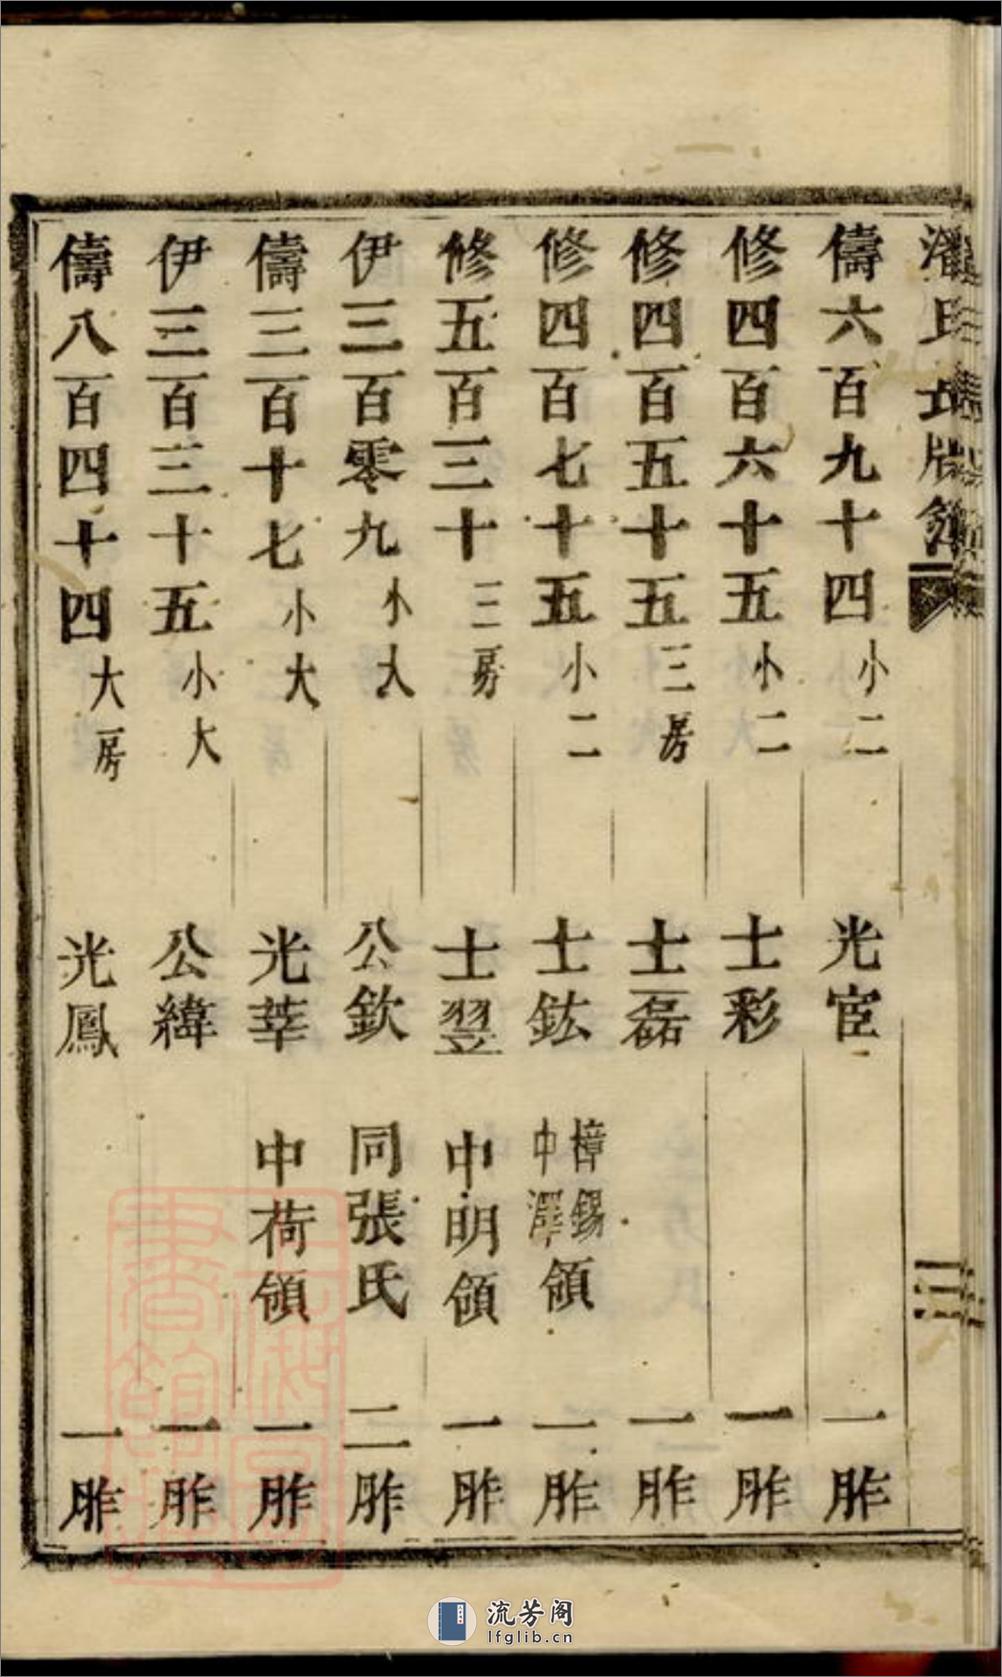 儔六百九十四 小二 光宦 一胙
修四百六十五 小二 士彩 一胙
修四百五十五 三房 士磊 一胙
修四百七十五 小二 士鈜 樟錫中澤領 一胙
修五百三十 三房 士翌 中明領 一胙
伊三百零九 小大 公欽 同張氏 二胙
儔三百十七 小大 光莘 中荷領 一胙
伊三百三十五 小大 公緯 一胙
儔八百四十四 大房 光鳳 一胙
流芳阁
lfglib.cn